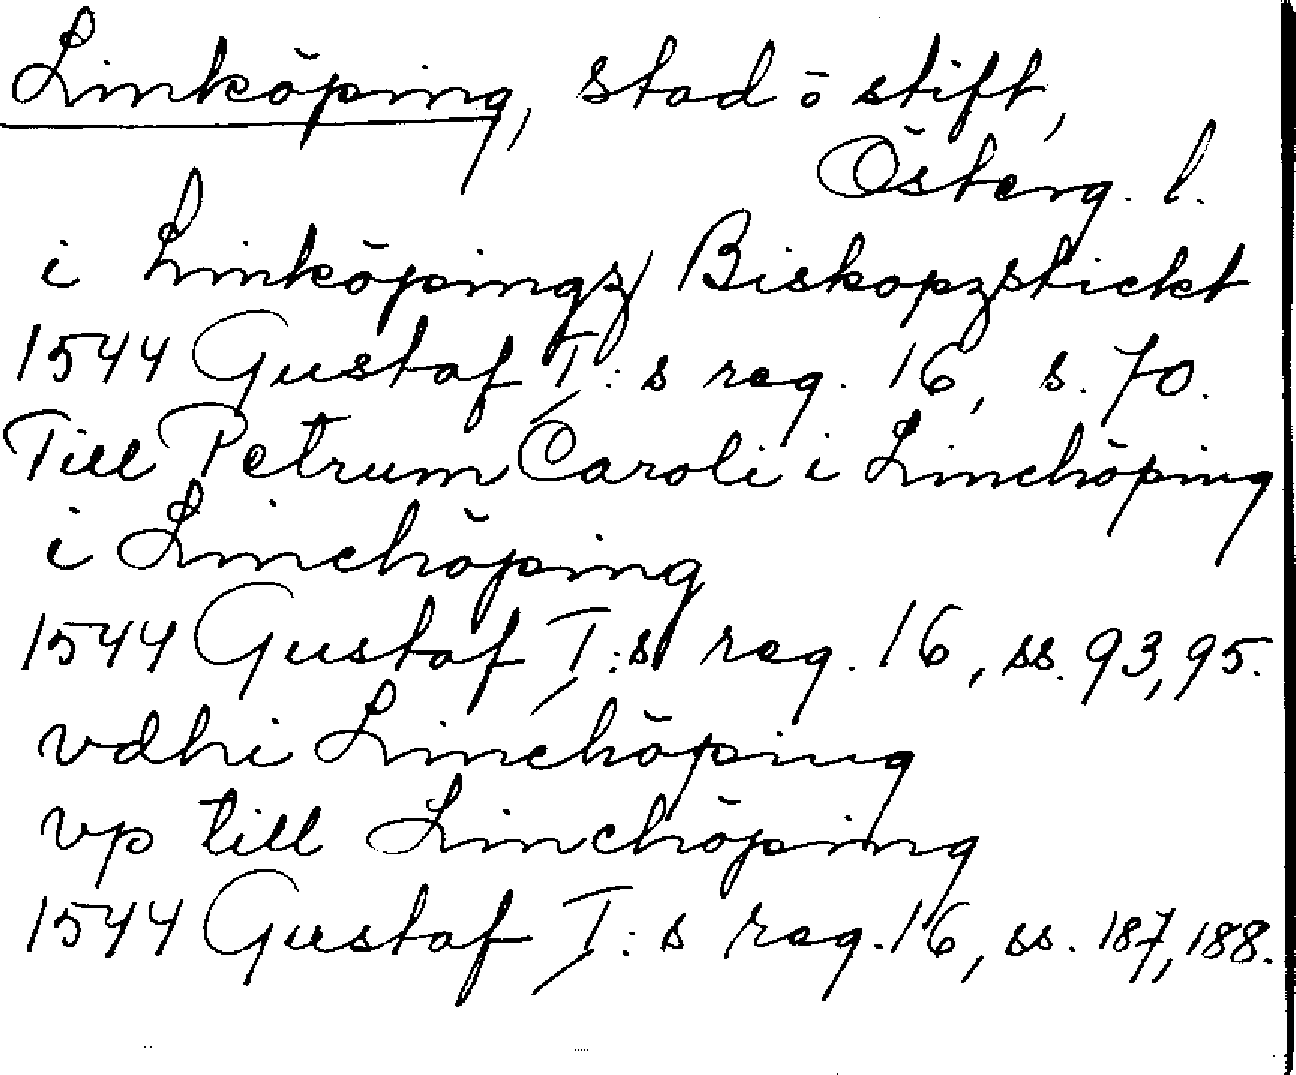 Linköping, stad o stift,
Österg. l.
i Linköpingz Biskopzstickt
1544 Gustaf I:s reg. 16, s. 70.
Till Petrum Caroli i Linchöping
i Linchöping
1544 Gustaf I:s reg. 16, ss. 93, 95.
vdhi Linchöping
vp till Linchöping
1544 Gustaf I:s reg. 16, ss. 187, 188.